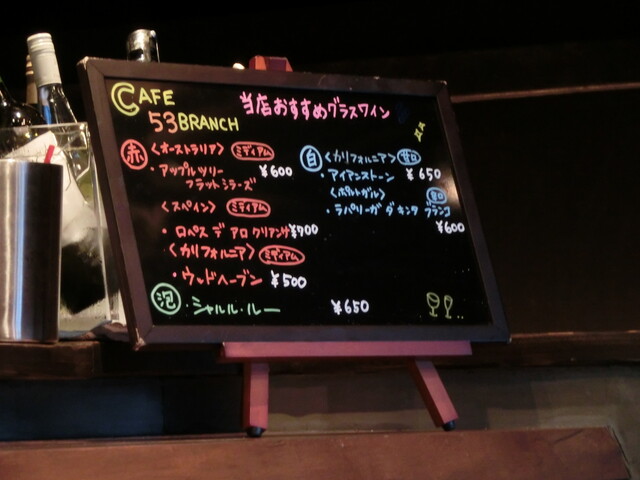 CAFE
53BRANCH
当店おすすめグラスワイン
赤 〈オーストラリア〉 ミディアム
・アップルツリー ¥600
フラットシラーズ
〈スペイン〉 ミディアム
・ロペス デ アロ クリアンサ ¥700
〈カリフォルニア〉 ミディアム
・ウッドヘーブン ¥500
泡・シャルル・ルー ¥650
白 〈カリフォルニア〉
・アイアンストーン ¥650
〈ポルトガル〉
・ラパリーガ ダ キンタ ブランコ
¥600